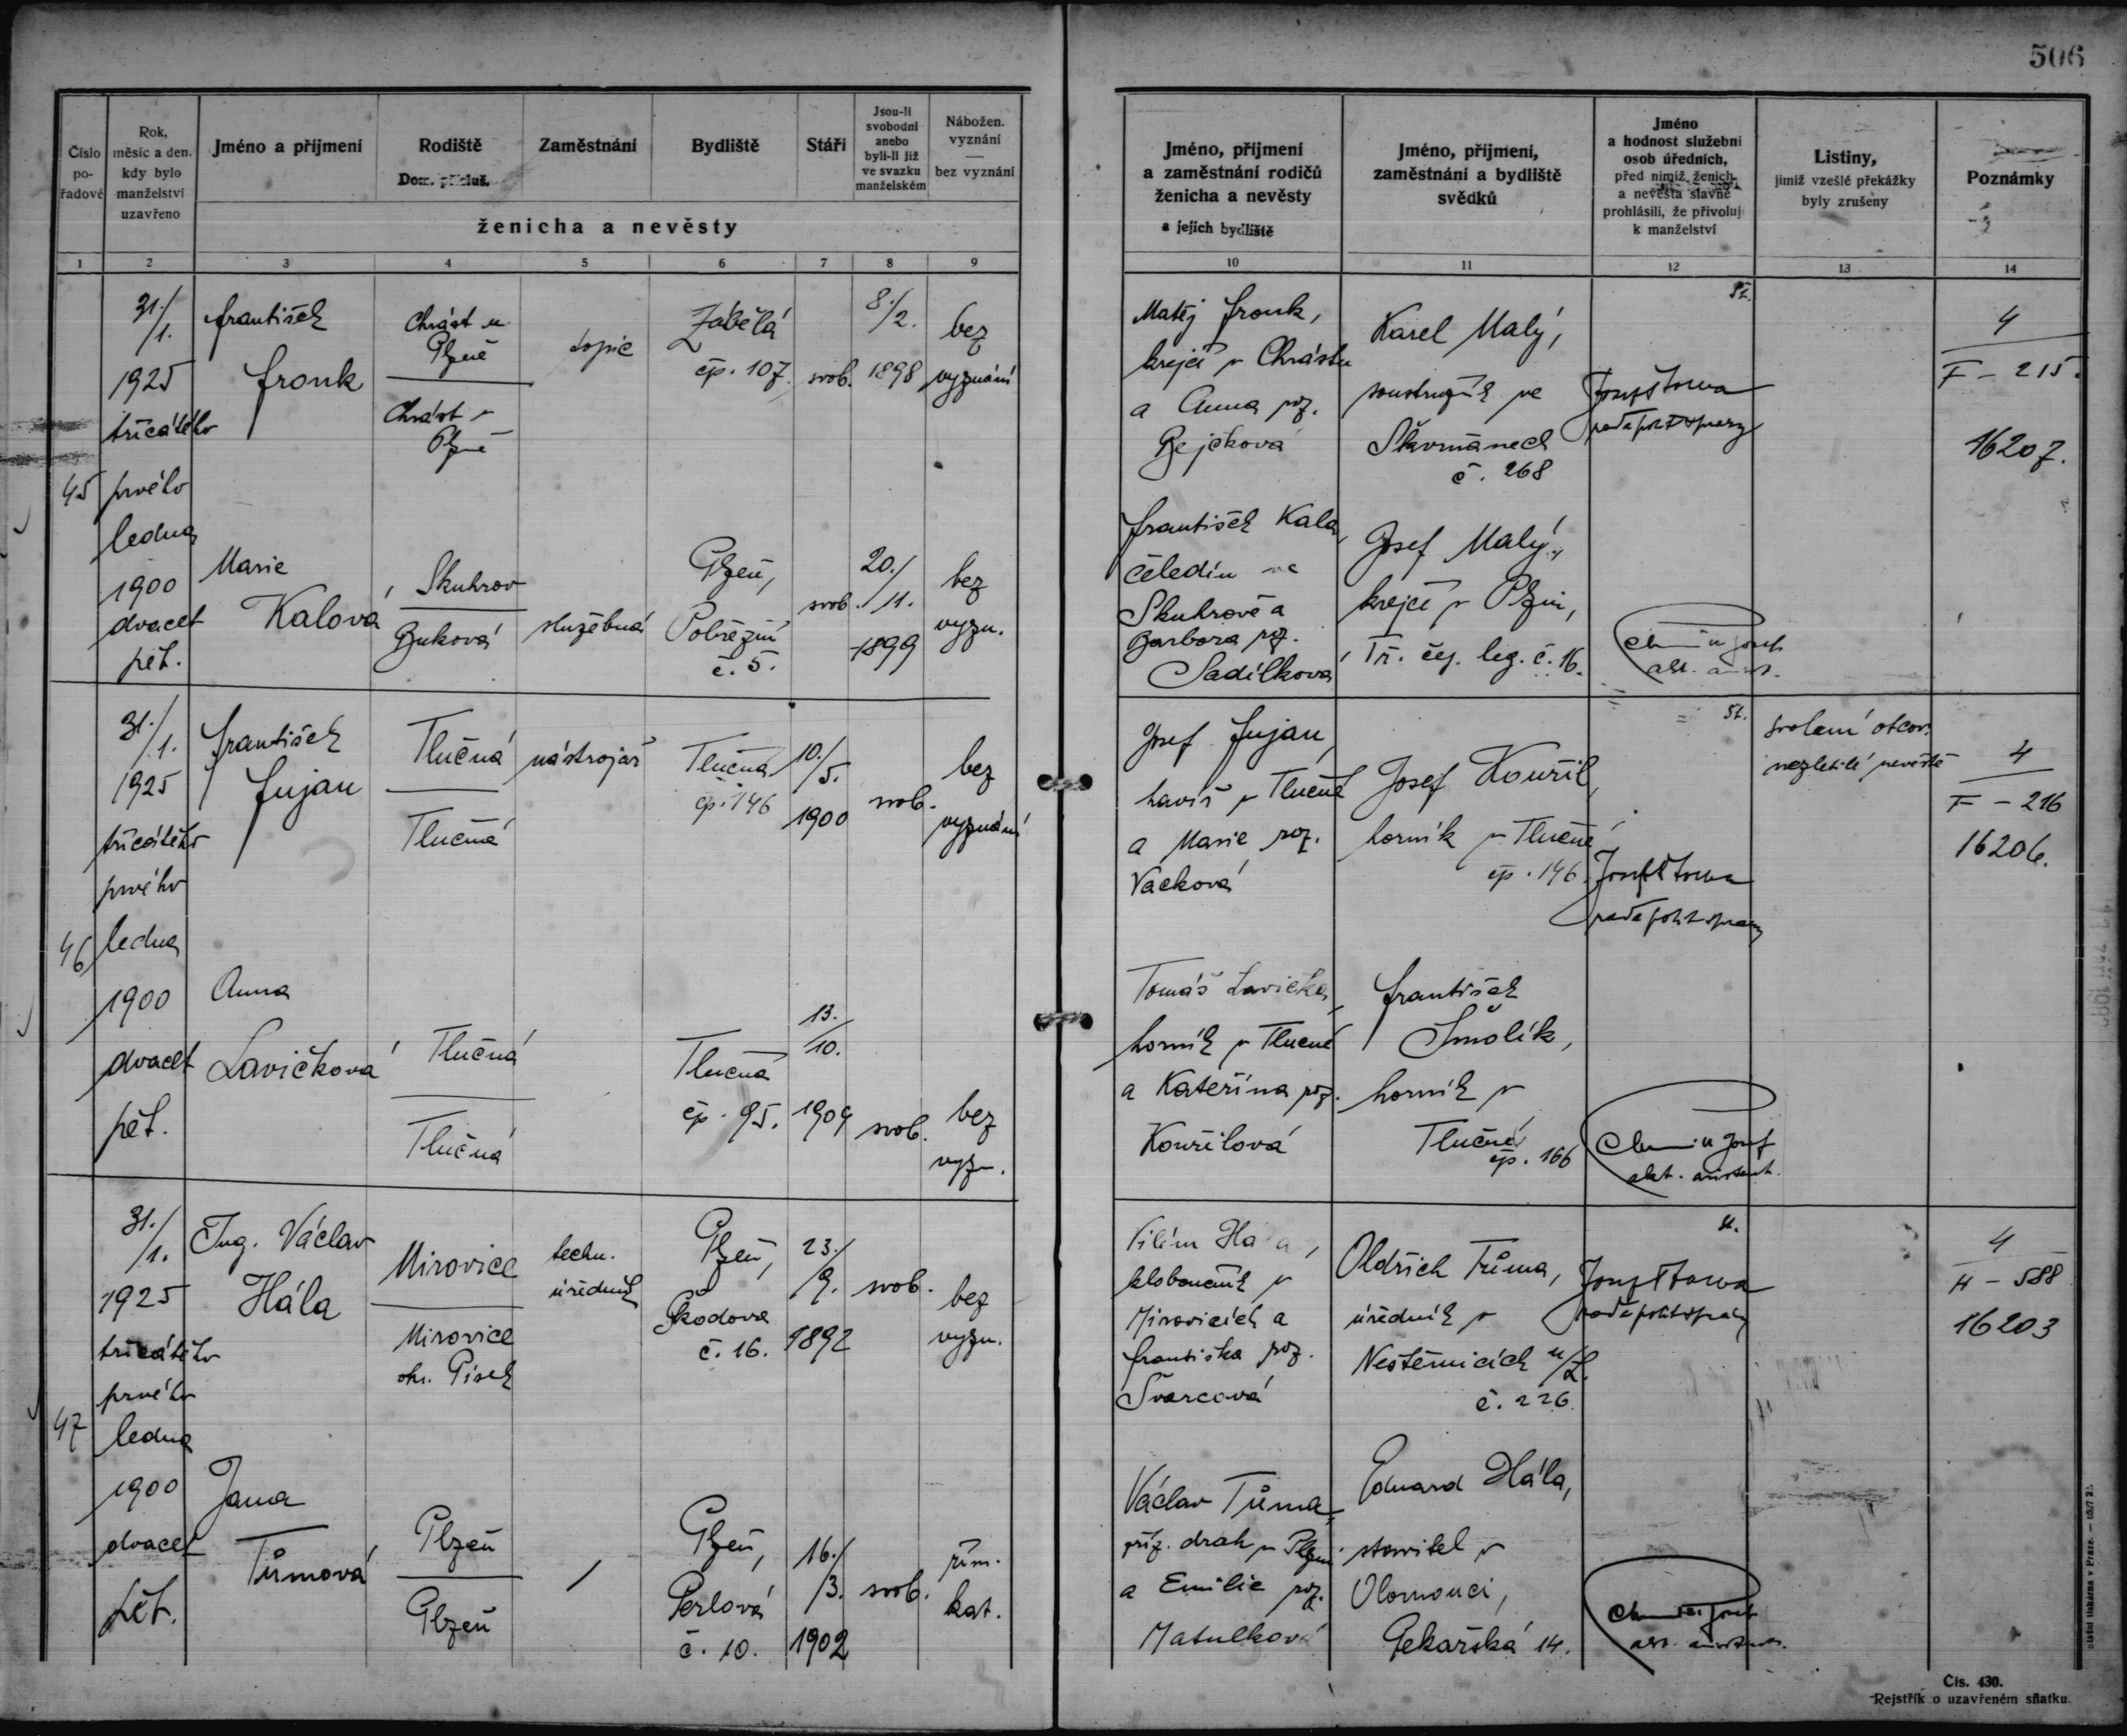 506
Číslo pořadové
Rok, měsíc a den, kdy bylo manželství uzavřeno
Jméno a příjmení
Rodiště
Dom. přísluš.
Zaměstnání
Bydliště
Stáří
Jsou-li svobodni anebo byli-li již ve svazku manželském
Nábožen. vyznání
bez vyznání
ženicha a nevěsty
Jméno, příjmení a zaměstnání rodičů ženicha a nevěsty
a jejich bydliště
Jméno, příjmení, zaměstnání a bydliště svědků
Jméno a hodnost služební osob úředních, před nimiž ženich a nevěsta slavně prohlásili, že přivolují k manželství
Listiny,
jimiž vzešlé překážky byly zrušeny
Poznámky
1 2 3 4 5 6 7 8 9 10 11 12 13 14
45
31./1.
1925
třicátého
prvého
ledna
1900
dvacet
pět.
František
Fronk
Chrást u
Plzně
Chrást u
Plzně
topič
Zábělá
čp. 107.
svob.
8./2.
1898
bez
vyznání
Matěj Fronk,
krejčí v Chrástu
a Anna roz.
Bejčková
Karel Malý,
soustružník ve
Škvrňanech
č. 268
4
F - 215.
16207.
Marie
Kalová
Skuhrov
Buková
služebná
Plzeň,
Pobřežní
č. 5.
svob.
20./11.
1899
bez
vyzn.
František Kala,
čeledín ve
Skuhrově a
Barbora roz.
Sadílková
Josef Malý,
krejčí v Plzni,
Tř. čs. leg. č. 16.
46
31./1.
1925
třicátého
prvého
ledna
1900
dvacet
pět.
František
Fujan
Tlučná
Tlučná
nástrojář
Tlučná
čp. 146
10./5.
1900
svob.
bez
vyznání
Josef Fujan,
havíř v Tlučné
a Marie roz.
Vacková
Josef Kouřil,
horník v Tlučné
čp. 146.
svolení otcov.
nezletilé nevěstě
4
F - 216
16206.
Anna
Lavičková
Tlučná
Tlučná
Tlučná
čp. 95.
13./10.
1904
svob.
bez
vyzn.
Tomáš Lavička,
horník v Tlučné
a Kateřina roz.
Kouřilová
František
Smolík,
horník v
Tlučné
čp. 166
47
31./1.
1925
třicátého
prvého
ledna
1900
dvacet
pět.
Ing. Václav
Hála
Mirovice
Mirovice
okr. Písek
techn.
úředník
Plzeň,
Škodova
č. 16.
23./9.
1892
svob.
bez
vyzn.
Vilém Hála,
kloboučník v
Mirovicích a
Františka roz.
Švarcová
Oldřich Tůma,
úředník v
Neštěmicích n/L.
č. 226
4
H - 588
16203
Jana
Tůmová
Plzeň
Plzeň
Plzeň,
Perlová
č. 10.
16./3.
1902
svob.
řím.
kat.
Václav Tůma,
zříz. drah v Plzni
a Emilie roz.
Matulková
Eduard Hála,
stavitel v
Olomouci,
Pekařská 14.
Čís. 430.
Rejstřík o uzavřeném sňatku.